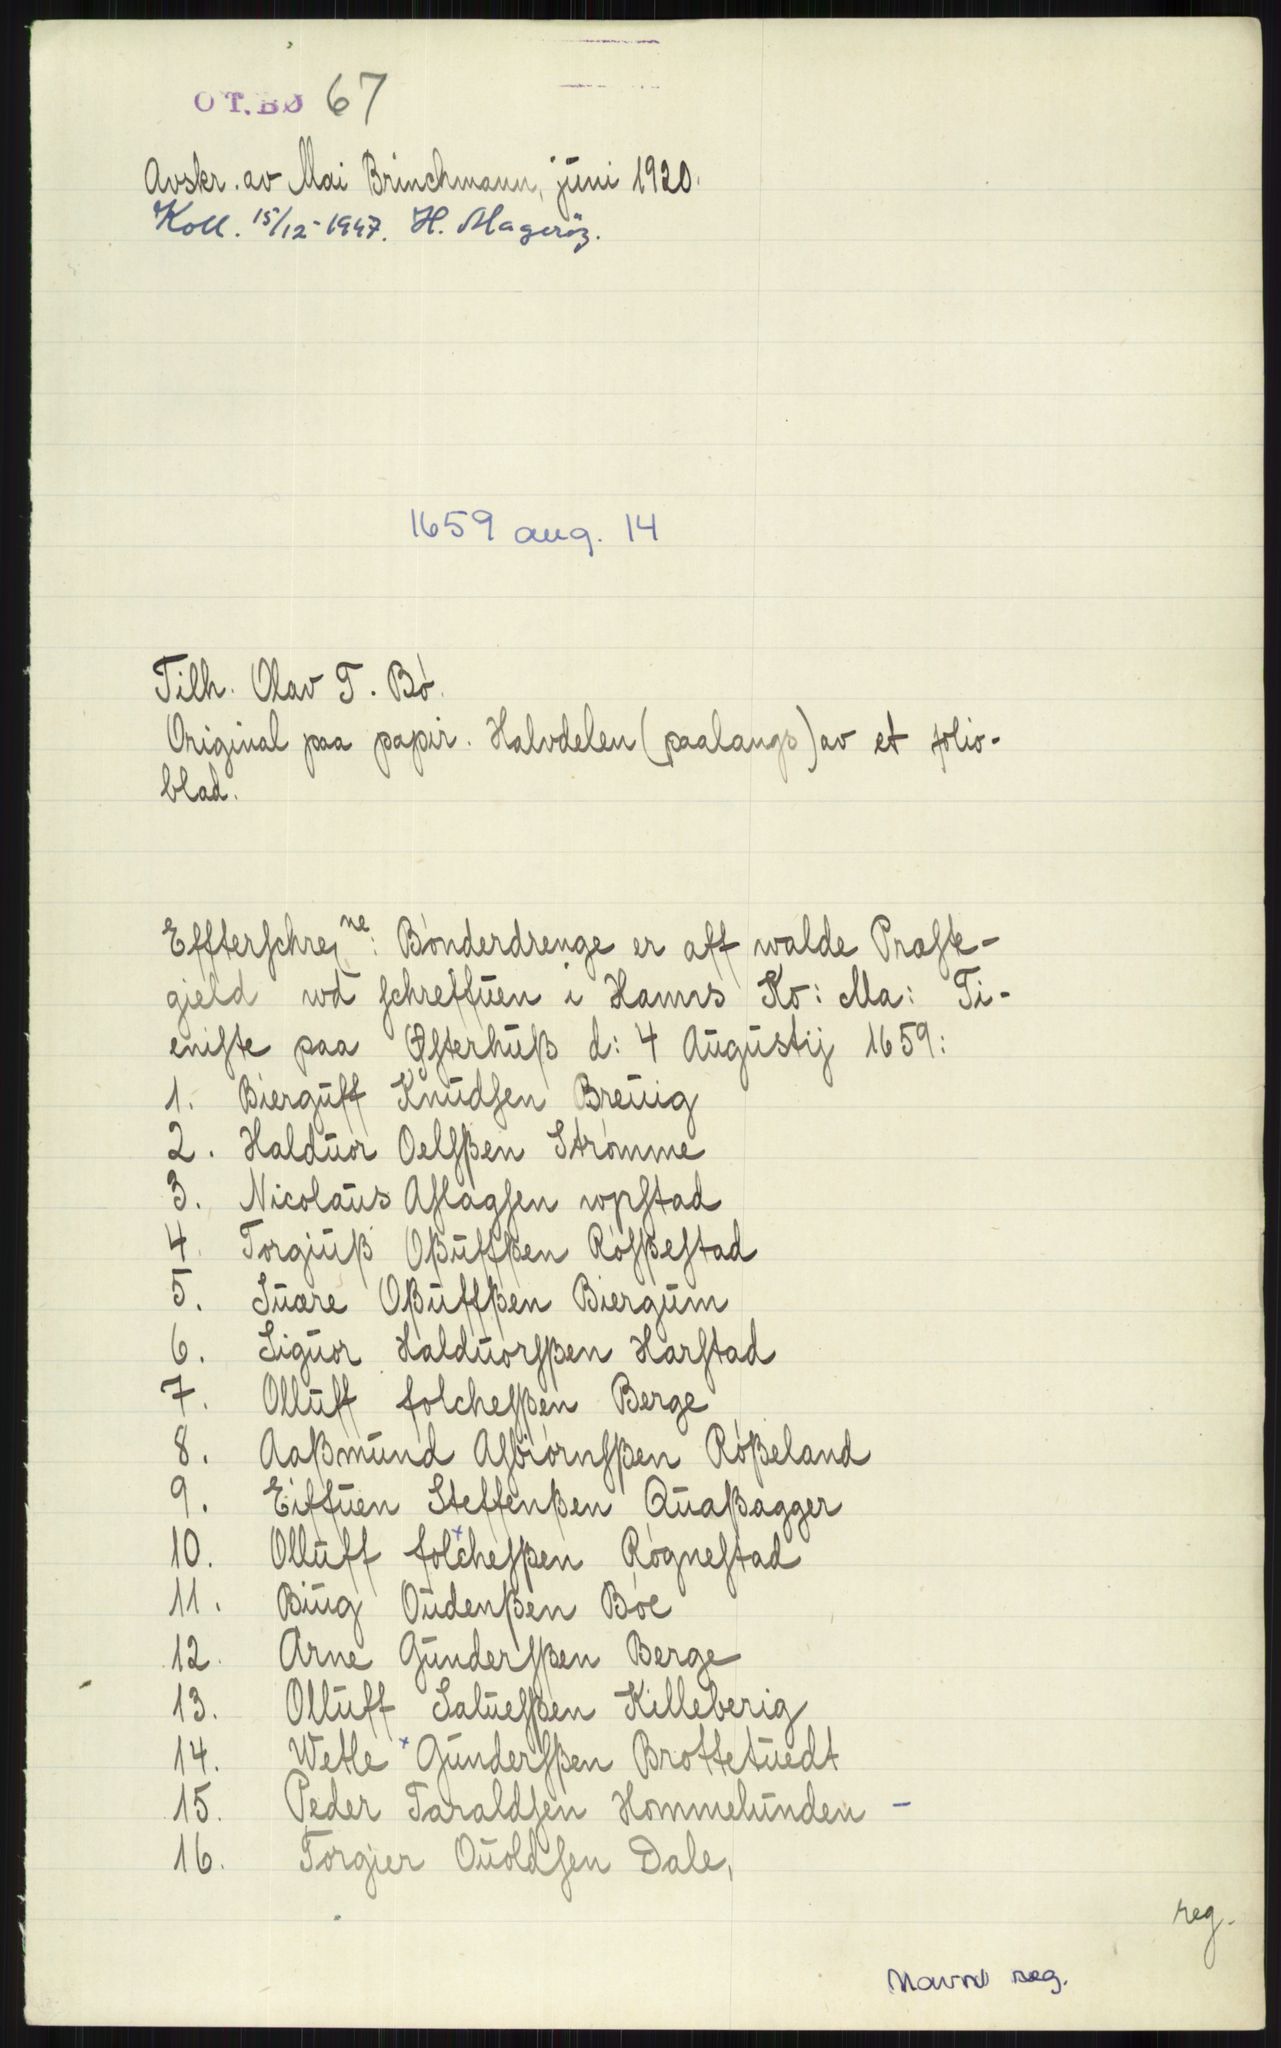 O T. BØ 67
Avskr. av Mai Brinchmann, juni 1920.
Koll. 15/12-1947. H. Magerøy.
1659 aug. 14
Tilh. Olav T. Bø.
Original paa papir. Halvdelen (paalangs) av et folio-
blad.
Effterſchreỹne: Bønderdrenge er aff walde Præſte-
gield wdſchreffuen i Hanns Ko: Ma: Ti-
eniſte paa Øſterhuß d: 4 Augustij 1659:
1. Bierguff Knudſen Breuig
2. Halduor Oelſßen Strømme
3. Nicolaus Aſlagſen wpſtad
4. Torgiuß Oßuffßen Røſßeſtad
5. Suære Oßuffßen Biergum
6. Siguor Halduorſßen Harſtad
7. Olluff folcheſßen Berge
8. Aaßmund Aſbiørnſßen Røßeland
9. Eiffuen Steffenßen Quaßagger
10. Olluff folcheſßen Røgneſtad
11. Biug Oudenßen Bøe
12. Arne Gunderſßen Berge
13. Olluff Salueſßen Killeberig
14. Wetle Gunderſßen Brottetuedt
15. Peder Taraldſen Hommelunden -
16. Torgier Ouoldſen Dale,
reg.
Navne reg.